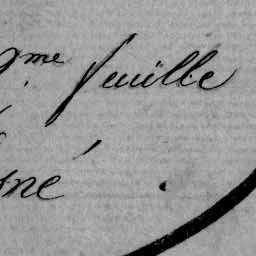 me feuille
né